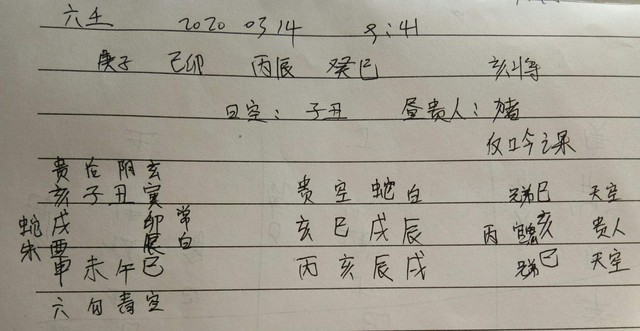 六壬 2020 03 14 9:41
庚子 己卯 丙辰 癸巳 亥将
日空：子丑 昼贵人：猪
反吟之课
贵后阴玄
亥子丑寅 贵空蛇白 兄弟巳 天空
蛇戌 卯常 亥巳戌辰 丙 官鬼亥 贵人
朱酉 辰白
申未午巳 丙亥辰戌 兄弟巳 天空
六勾青空